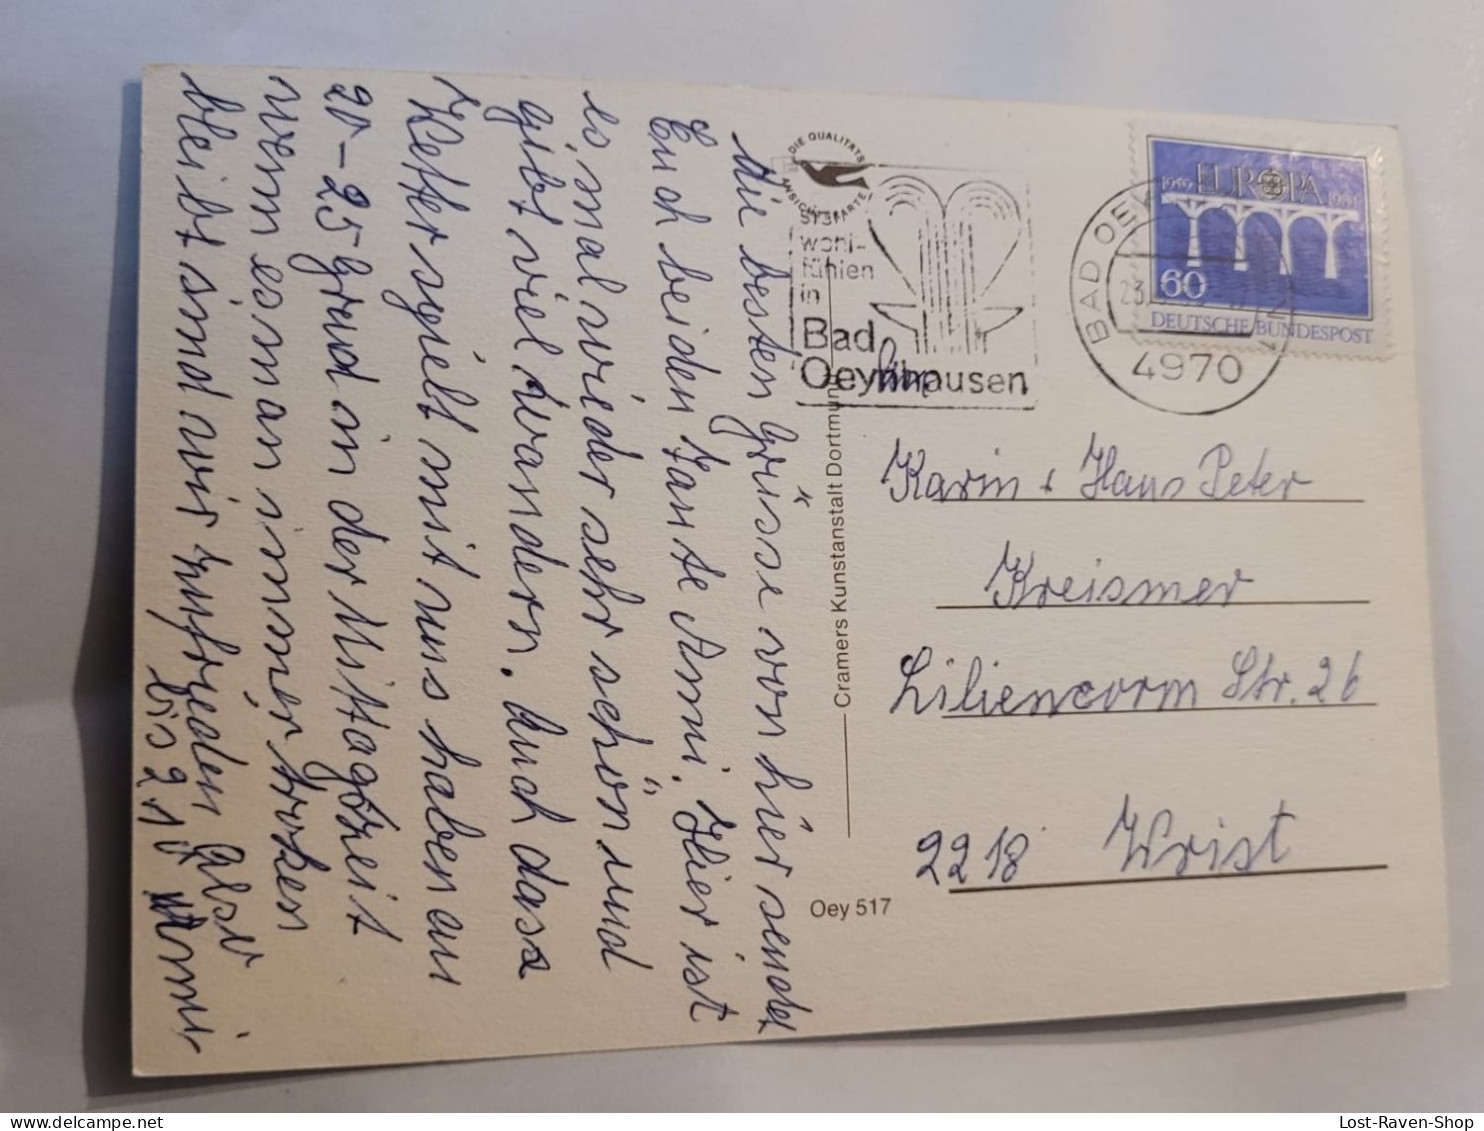 Die besten Grüsse von hier sendet
Euch beiden Tante Anni. Hier ist
es mal wieder sehr schön und
gibt viel zu wandern. Auch dass
Wetter spielt mit uns haben an
20-25 Grad in der Mittagszeit
wenn es man immer troken
bleibt sind wir zufrieden also
bis 2 10 Anni
DIE QUALITÄTS
ANSICHTSKARTE
wohl-
fühlen
in
Bad
Oeynhausen
Familie
BAD OEYNHAUSEN
23.
4970
1959 EUROPA 1984
60
DEUTSCHE BUNDESPOST
Cramers Kunstanstalt Dortmund
Oey 517
Karin + Hans Peter
Kreismer
Liliencorm Str. 26
2218 Wrist
delcampe.net
Lost-Raven-Shop